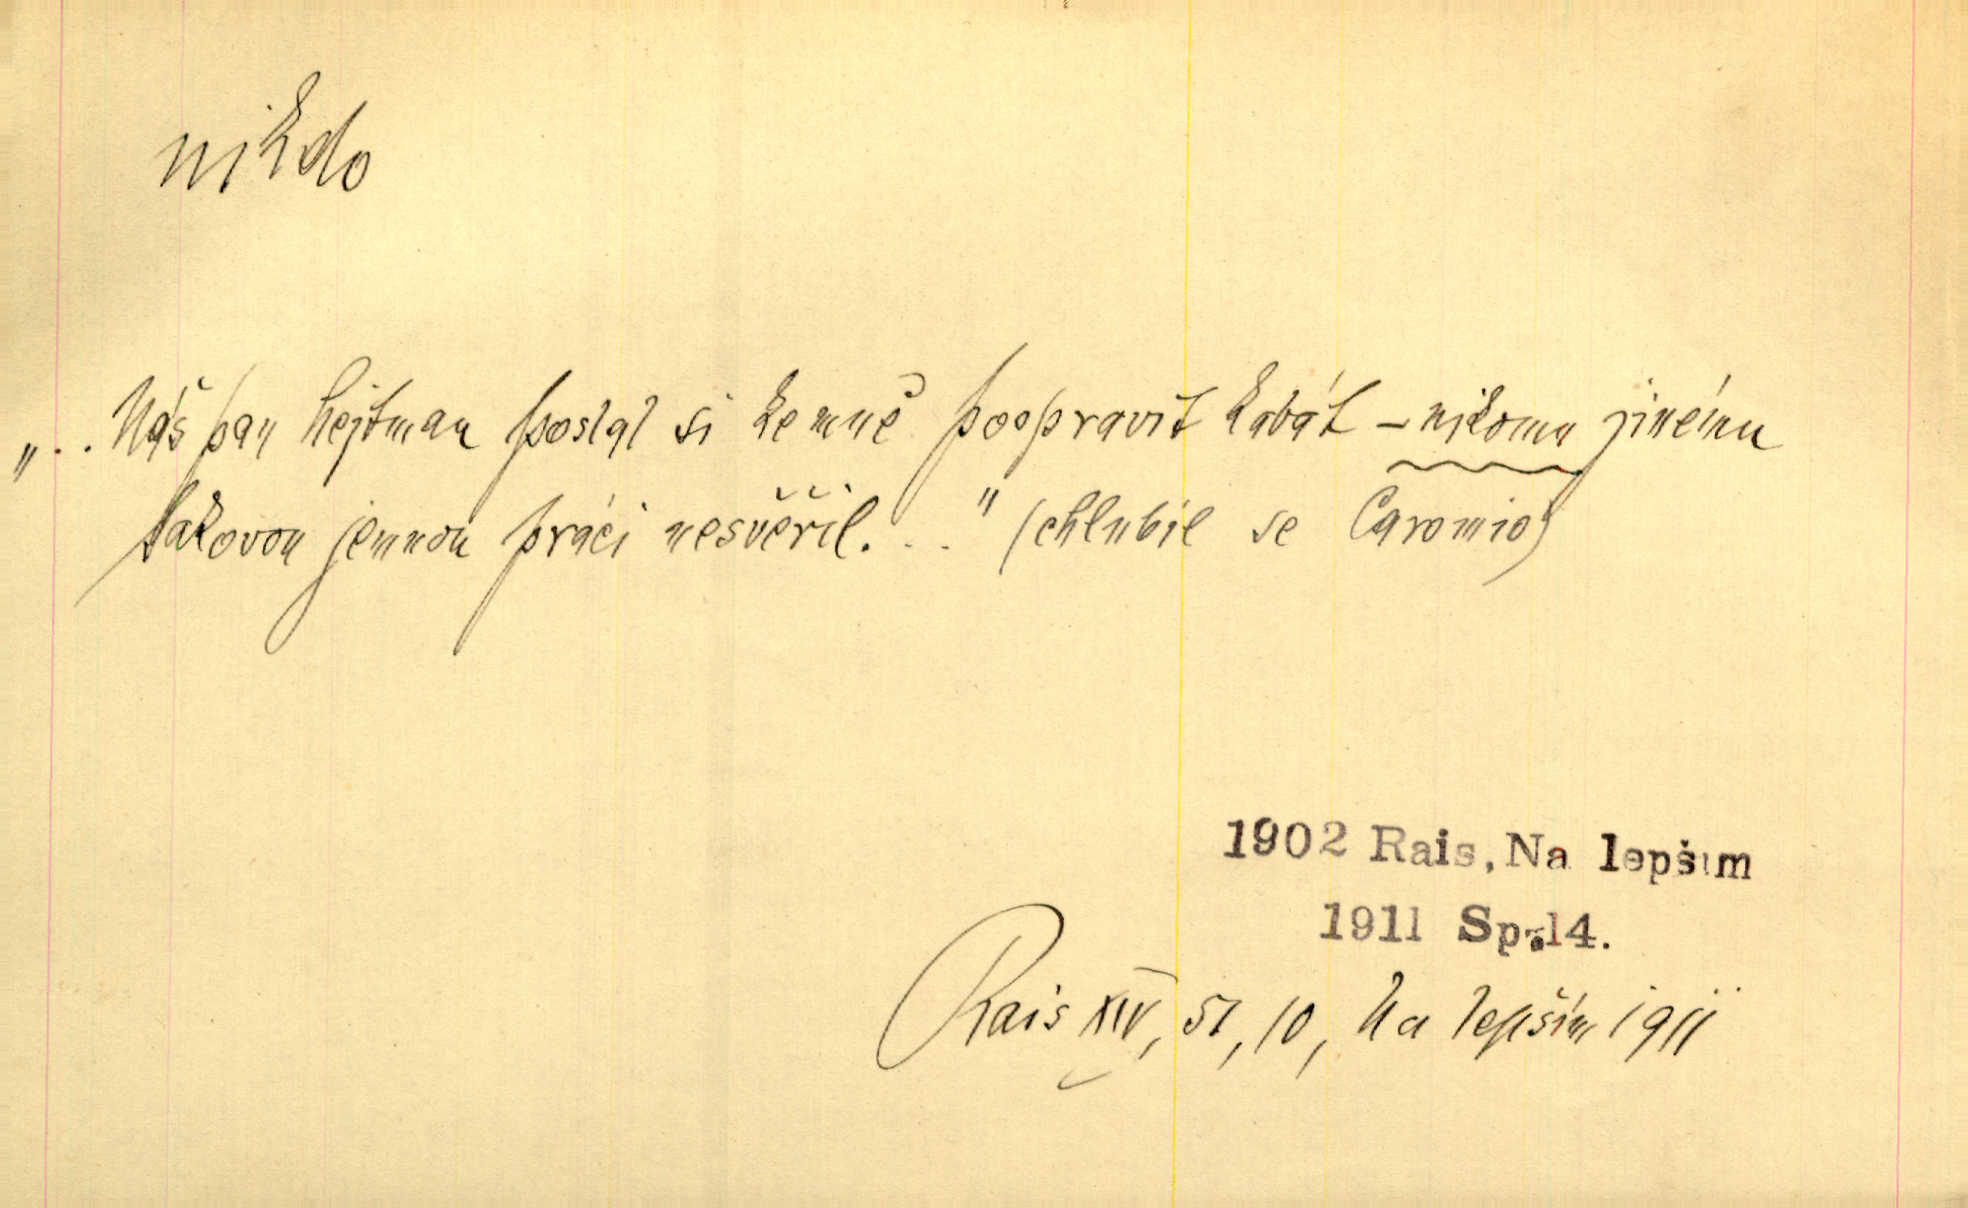 nikdo
„.. Náš pan hejtman poslal si ke mně poopravit kabát – nikomu jinému
takovou jemnou práci nesvěřil. . . " (chlubil se Caromio)
1902 Rais, Na lepším
1911 Sp. 14.
Rais XIV, 51, 10, Na lepším 1911